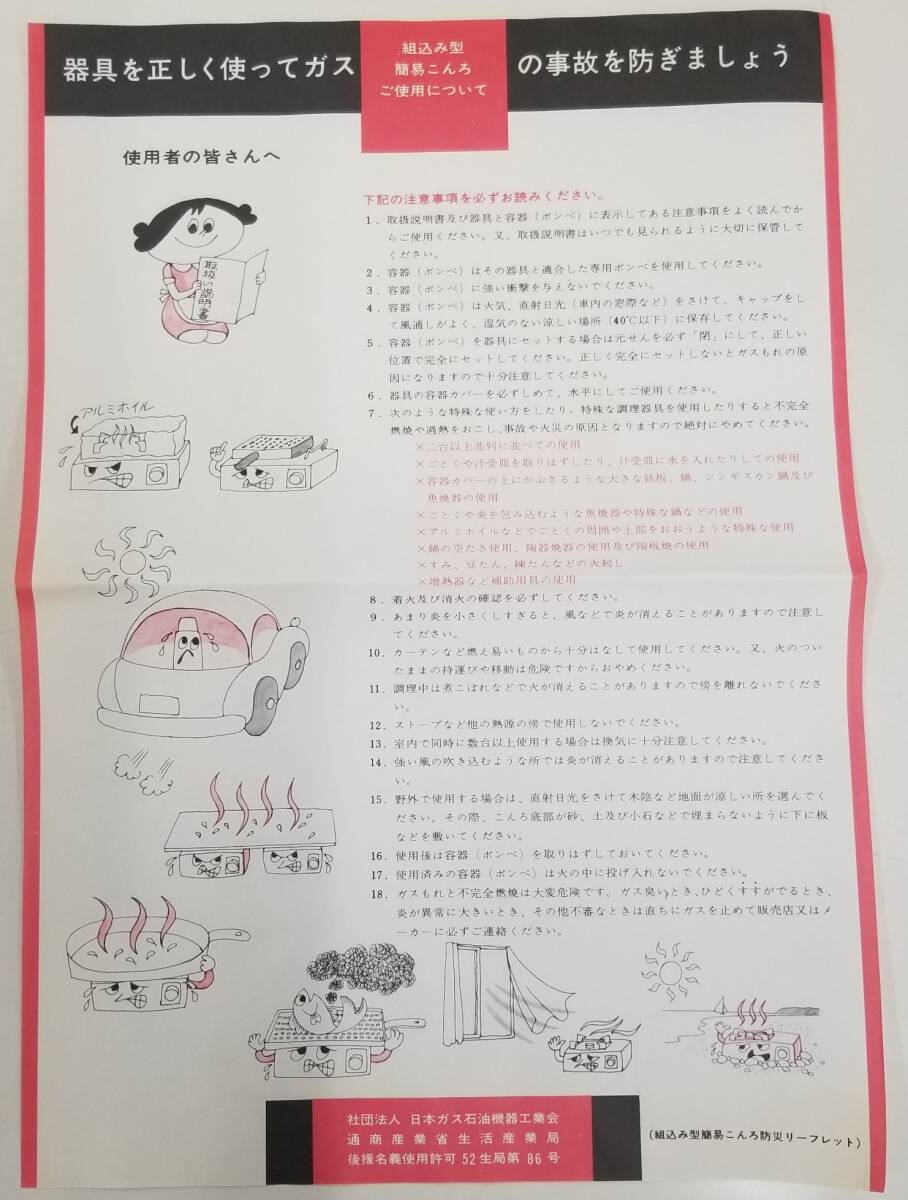 器具を正しく使ってガス
組込み型
簡易こんろ
ご使用について
の事故を防ぎましょう
使用者の皆さんへ
取扱い説明書
アルミホイル
下記の注意事項を必ずお読みください。
1．取扱説明書及び器具と容器（ボンベ）に表示してある注意事項をよく読んでか
らご使用ください。又、取扱説明書はいつでも見られるように大切に保管して
ください。
2．容器（ボンベ）はその器具と適合した専用ボンベを使用してください。
3．容器（ボンベ）に強い衝撃を与えないでください。
4．容器（ボンベ）は火気、直射日光（車内の窓際など）をさけて、キャップをし
て風通しがよく、湿気のない涼しい場所（40℃以下）に保存してください。
5．容器（ボンベ）を器具にセットする場合は元せんを必ず「閉」にして、正しい
位置で完全にセットしてください。正しく完全にセットしないとガスもれの原
因になりますので十分注意してください。
6．器具の容器カバーを必ずしめて、水平にしてご使用ください。
7．次のような特殊な使い方をしたり、特殊な調理器具を使用したりすると不完全
燃焼や過熱をおこし、事故や火災の原因となりますので絶対にやめてください。
×二台以上並列に並べての使用
×ごとくや汁受皿を取りはずしたり、汁受皿に水を入れたりしての使用
×容器カバーの上にかぶさるような大きな鉄板、鍋、ジンギスカン鍋及び
魚焼器の使用
×ごとくや炎を包み込むような魚焼器や特殊な鍋などの使用
×アルミホイルなどでごとくの周囲や上部をおおうような特殊な使用
×鍋の空だき使用、陶器焼器の使用及び陶板焼の使用
×すみ、豆たん、練たんなどの火起し
×増熱器など補助用具の使用
8．着火及び消火の確認を必ずしてください。
9．あまり炎を小さくしすぎると、風などで炎が消えることがありますので注意し
てください。
10．カーテンなど燃え易いものから十分はなして使用してください。又、火のつい
たままの持運びや移動は危険ですからおやめください。
11．調理中は煮こぼれなどで火が消えることがありますので傍を離れないでくださ
い。
12．ストーブなど他の熱源の傍で使用しないでください。
13．室内で同時に数台以上使用する場合は換気に十分注意してください。
14．強い風の吹き込むような所では炎が消えることがありますので注意してくださ
い。
15．野外で使用する場合は、直射日光をさけて木陰など地面が涼しい所を選んでく
ださい。その際、こんろ底部が砂、土及び小石などで埋まらないように下に板
などを敷いてください。
16．使用後は容器（ボンベ）を取りはずしておいてください。
17．使用済みの容器（ボンベ）は火の中に投げ入れないでください。
18．ガスもれと不完全燃焼は大変危険です。ガス臭いとき、ひどくすすがでるとき、
炎が異常に大きいとき、その他不審なときは直ちにガスを止めて販売店又はメ
ーカーに必ずご連絡ください。
社団法人 日本ガス石油機器工業会
通商産業省生活産業局
後援名義使用許可 52生局第 86号
（組込み型簡易こんろ防災リーフレット）